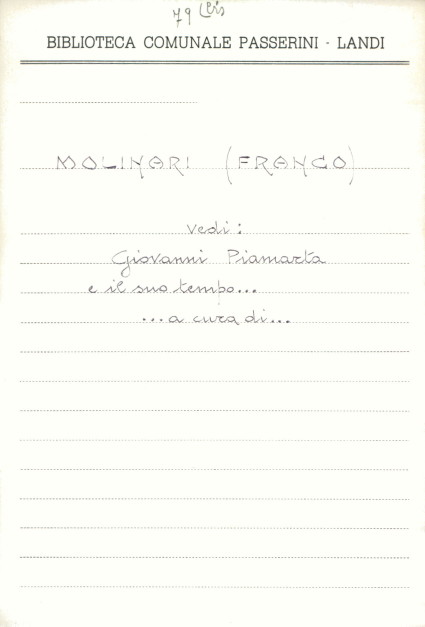 79 (bis
BIBLIOTECA COMUNALE PASSERINI - LANDI
MOLINARI (FRANCO)
vedi:
Giovanni Piamarta
e il suo tempo...
...a cura di...